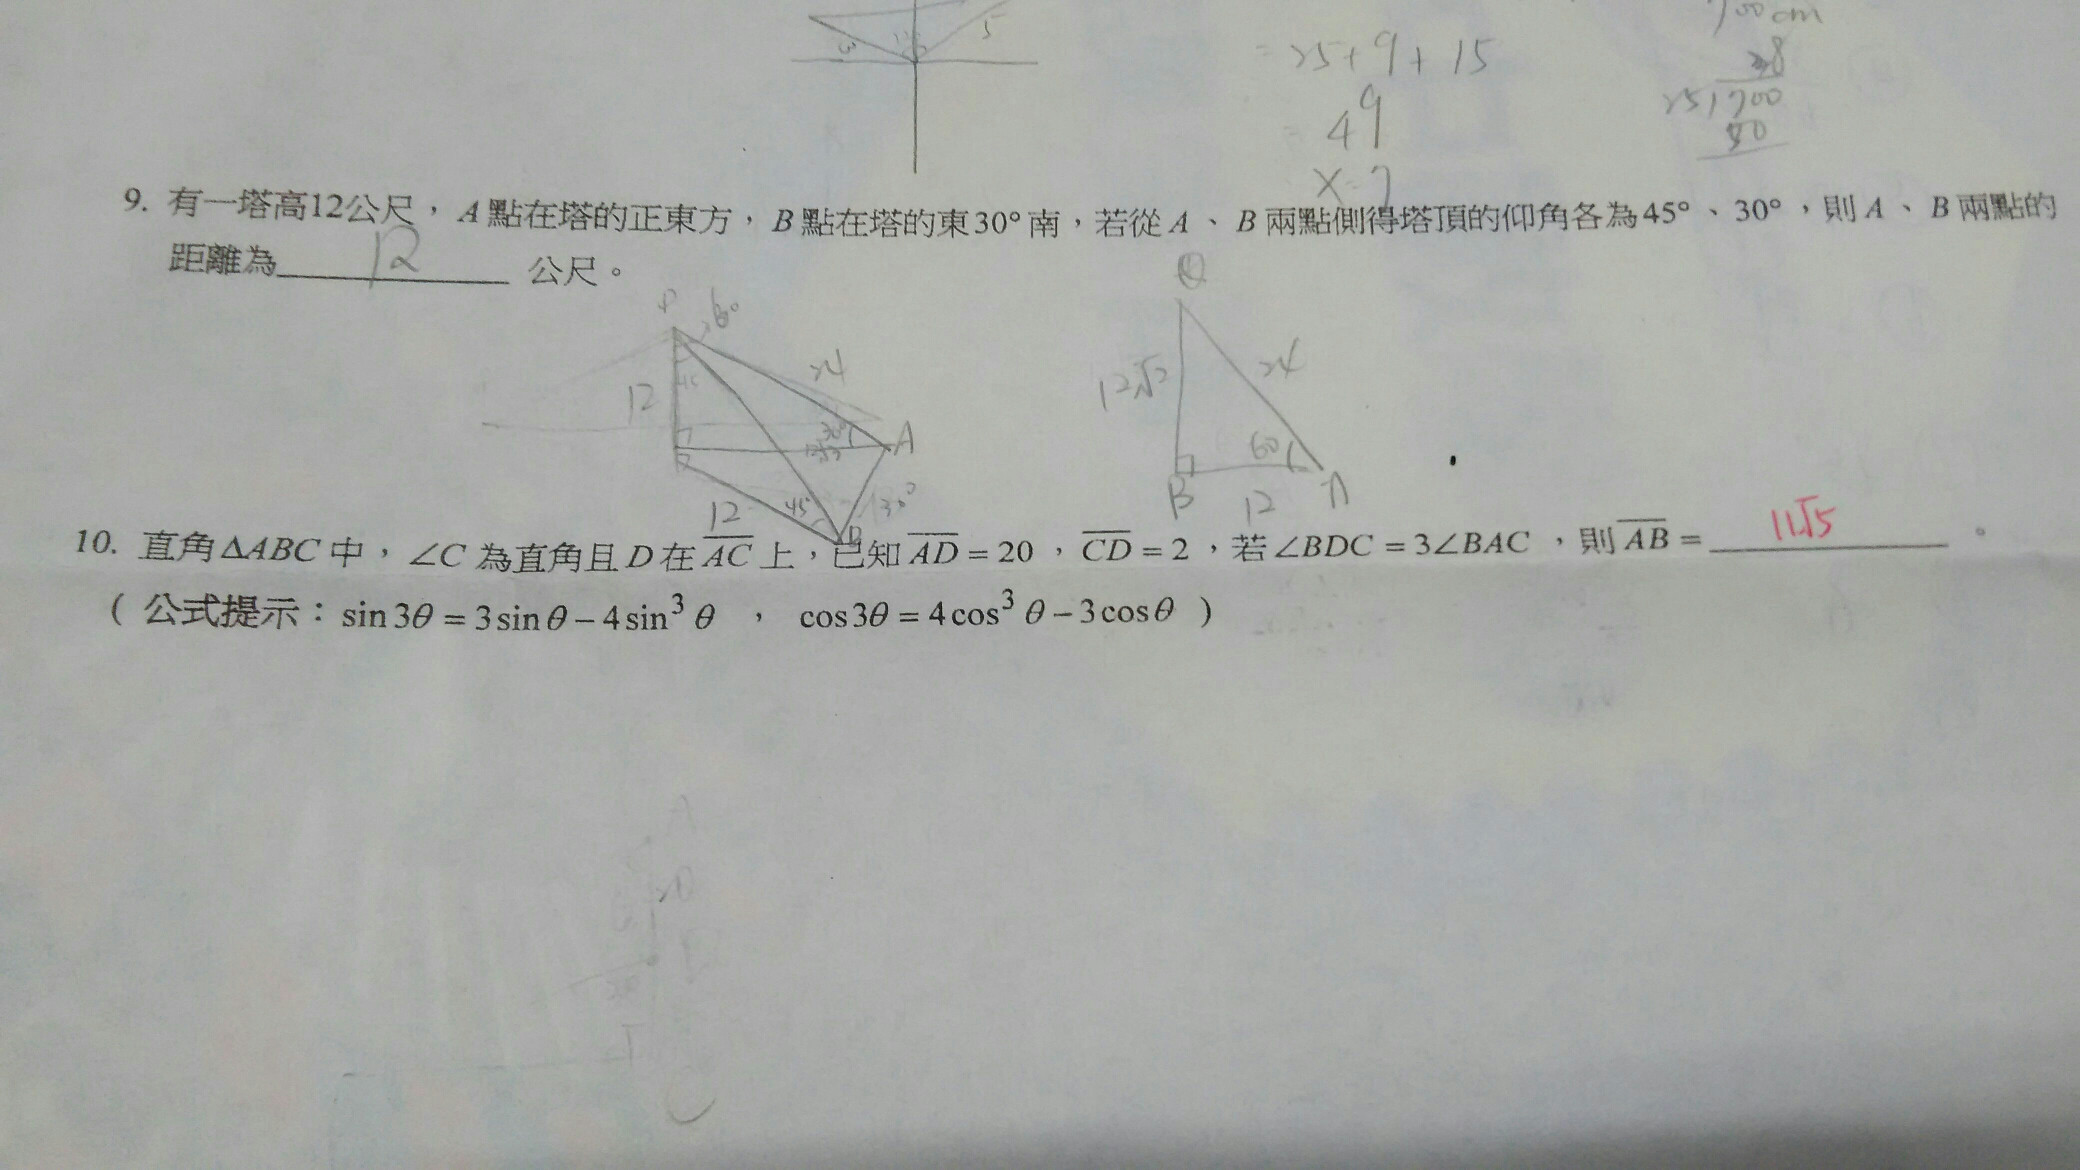 5
3
= 25 + 9 + 15
49
x = 7
700 cm
28
25 700
50
9. 有一塔高12公尺，A點在塔的正東方，B點在塔的東30°南，若從A、B兩點側得塔頂的仰角各為45°、30°，則A、B兩點的
距離為 12 公尺。
P 60°
45
12
24
30°
A
12
45°
B
30°
12√2
24
60
B
12
A
10. 直角ΔABC中，∠C為直角且D在AC上，已知AD = 20，CD = 2，若∠BDC = 3∠BAC，則AB = 11√5。
( 公式提示：sin3θ = 3sinθ − 4sin³θ ， cos3θ = 4cos³θ − 3cosθ )
A
20
C